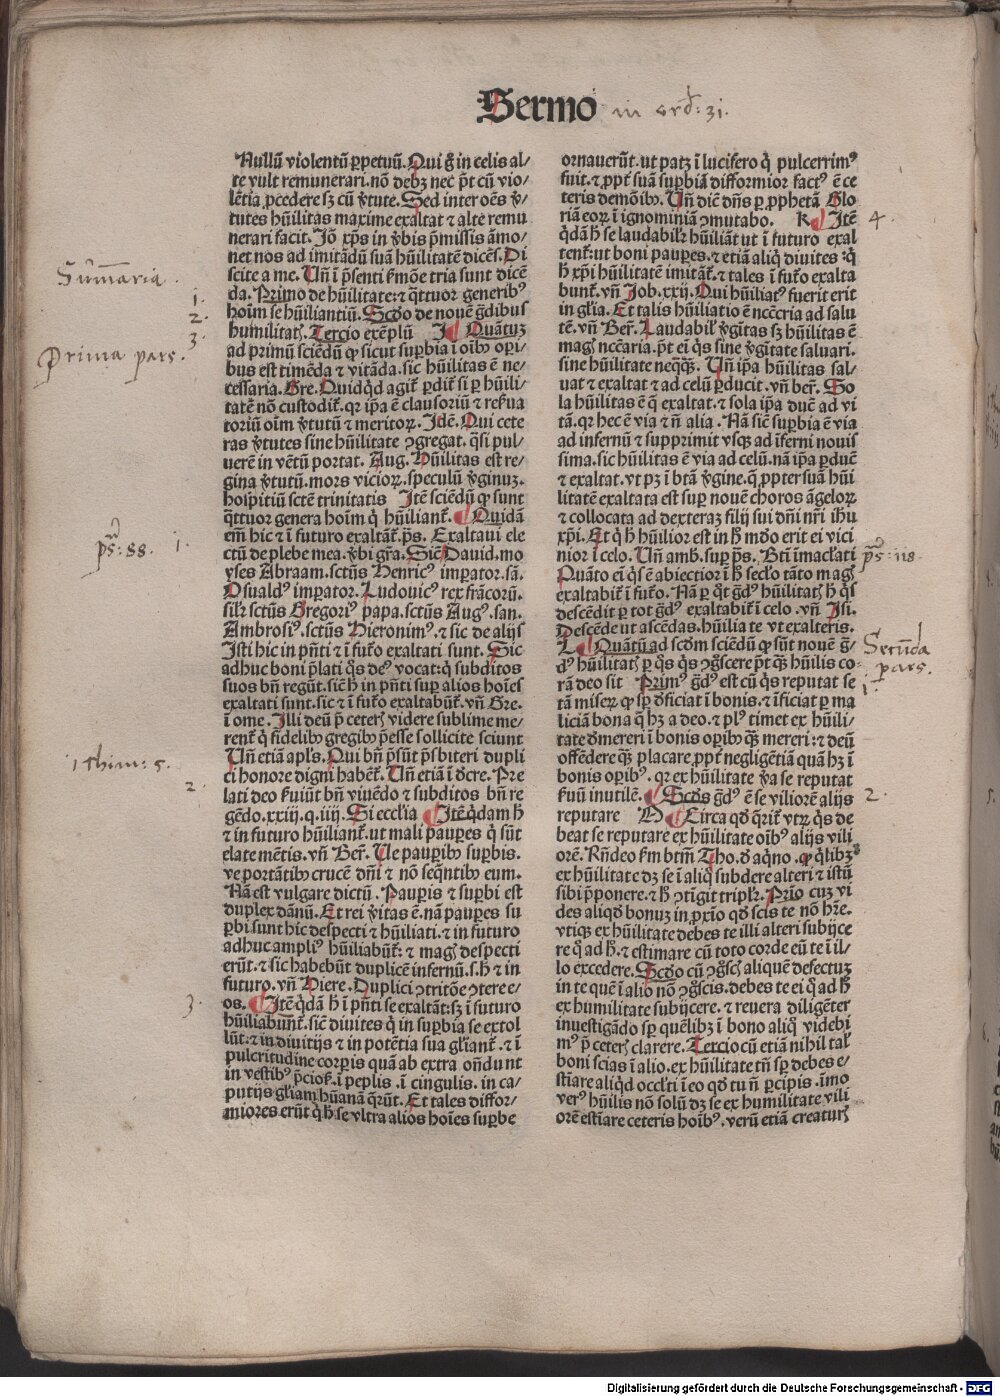 Sermo in ord: 31.
Nullū violentū ꝑpetuū. Qui g̊ in celis al/
te vult remunerari. nō debꝫ nec p̄t cū vio/
lētia ꝓcedere sꝫ cū v̄tute. Sed inter oēs v̄/
tutes hūilitas maxime exaltat ⁊ alte remu
nerari facit. Iō xp̄s in v̄bis p̄missis āmo/
net nos ad imitādū suā hūilitatē dicēs. Di
scite a me. Un̄ ī p̄senti ẜmōe tria sunt dicē
da. Primo de hūilitate: ⁊ q̄ttuor generibꝰ
hoīm se hūiliantiū. Scd̄o de nouē ḡdibus
humilitatꝭ. Tercio exēplū I Quātuꝫ
ad primū sciēdū ꝙ sicut suꝑbia ī oībꝰ oꝑi/
bus est timēda ⁊ vitāda. sic hūilitas ē ne/
cessaria. Gre. Quidqd̄ agit̄ ꝑdit̄ si ꝑ hūili/
tatē nō custodit̄. qꝛ ip̄a ē clausoriū ⁊ reẜua
toriū oīm v̄tutū ⁊ meritoꝝ. Idē. Qui cete
ras v̄tutes sine hūilitate ꝯgregat. q̄si pul/
uerē in vētū portat. Aug. Hūilitas est re/
gina v̄tutū. mors vicioꝝ. speculū v̄ginuꝫ.
hospitiū sctē trinitatis Itē sciēdū ꝙ sunt
q̄ttuor genera hoīm q̄ hūiliant̄. Quidā
em̄ hic ⁊ ī futuro exaltāt̄. p̄s. Exaltaui ele
ctū de plebe mea. v̄bi gr̄a. Sic̄ Dauid. mo
yses Abraam. sctūs Henricꝰ imꝑator. sā.
Osualdꝰ imꝑator. Ludouicꝰ rex frācorū.
silꝛ sctūs Gregoriꝰ papa. sctūs Augꝰ. san.
Ambrosiꝰ. sctūs Hieronimꝰ. ⁊ sic de alijs
Isti hic in pn̄ti ⁊ ī fut̄o exaltati sunt. Sic
adhuc boni p̄lati q̄s deꝰ vocat: q̄ subditos
suos bn̄ regūt. sic̄ h̄ in pn̄ti suꝑ alios hoīes
exaltati sunt. sic ⁊ ī fut̄o exaltabūt̄. vn̄ Gre.
ī ome. Illi deū p̄ ceterꝭ videre sublime me/
rent̄ q̄ fidelibꝰ gregibꝰ p̄esse sollicite sciunt
Un̄ etiā apl̄s. Qui bn̄ p̄sūt p̄sbiteri dupli
ci honore digni habēt̄. Un̄ etiā ī dc̄re. Pre
lati deo ẜuiūt bn̄ viuēdo ⁊ subditos bn̄ re
gēdo. xxiij. q. iiij. Si eccl̄ia Itē q̄dam h̄
⁊ in futuro hūiliant̄. ut mali pauꝑes q̄ sūt
elate mētis. vn̄ Ber̄. Ue pauꝑibꝰ suꝑbis.
ve portātibꝰ crucē dn̄i ⁊ nō seq̄ntibꝰ eum.
Nā est vulgare dictū. Pauꝑis ⁊ suꝑbi est
duplex dānū. Et rei v̄itas ē. nā pauꝑes su
ꝑbi sunt hic despecti ⁊ hūiliati. ⁊ in futuro
adhuc ampliꝰ hūiliabūt̄: ⁊ magꝭ despecti
erūt. ⁊ sic habebūt duplicē infernū. s. h̄ ⁊ in
futuro. vn̄ Hiere. Duplici ꝯtritōe ꝯtere e/
os. Itē q̄dā h̄ ī pn̄ti se exaltāt: sꝫ ī futuro
hūiliabunt̄. sic̄ diuites q̄ in suꝑbia se extol
lūt: ⁊ in diuitijs ⁊ in potētia sua gl̄iant̄. ⁊ ī
pulcritudine corꝑis quā ab extra on̄dunt
in vestibꝰ p̄ciosꝭ. ī peplis. ī cingulis. in ca/
putijs gl̄iam hūanā q̄rūt. Et tales diffor/
miores erūt q̄ h̄ se vltra alios hoīes suꝑbe
ornauerūt. ut patꝫ ī lucifero q̄ pulcerrimꝰ
fuit. ⁊ ꝓpt̄ suā suꝑbiā difformior factꝰ ē ce
teris demōibꝰ. Un̄ dic̄ dn̄s ꝑ ꝓphetā Glo
riā eoꝝ ī ignominiā ꝯmutabo. K Itē
q̄dā h̄ se laudabilꝛ hūiliāt ut ī futuro exal
tent̄: ut boni pauꝑes. ⁊ etiā aliq̄ diuites: q̄
h̄ xp̄i hūilitatē imitāt̄. ⁊ tales ī fut̄o exalta
bunt̄. vn̄ Iob. xxij. Qui hūiliatꝰ fuerit erit
in gl̄ia. Et talis hūiliatio ē nccēria ad salu
tē. vn̄ Ber̄. Laudabilꝭ v̄gītas sꝫ hūilitas ē
magꝭ nccēaria. p̄t ei q̄s sine v̄gītate saluari.
sine hūilitate neq̄q̄ꝫ. Un̄ ip̄a hūilitas sal/
uat ⁊ exaltat ⁊ ad celū ꝑducit. vn̄ ber̄. So
la hūilitas ē q̄ exaltat. ⁊ sola ip̄a ducē ad vi
tā. qꝛ hec ē via ⁊ n̄ alia. Nā sic̄ suꝑbia ē via
ad infernū ⁊ supprimit vsqꝫ ad īferni nouis
sima. sic hūilitas ē via ad celū. nā ip̄a ꝑducē
⁊ exaltat. vt pꝫ ī btā v̄gine. q̄ ꝓpter suā hūi
litatē exaltata est suꝑ nouē choros āgeloꝝ
⁊ collocata ad dexteraꝫ filij sui dn̄i nr̄i ih̄u
xp̄i. Et q̄ h̄ hūilior est in h̄ mūdo erit ei vici
nior ī celo. Un̄ amb̄. suꝑ p̄s. Bt̄i īmacl̄ati
Quāto ei q̄s ē abiectior ī h̄ secl̄o tāto magꝭ
exaltabit̄ ī fut̄o. Nā ꝑ qt̄ ḡdꝰ hūilitatꝭ h̄ q̄s
descēdit ꝑ tot ḡdꝰ exaltabit̄ ī celo. vn̄ Isi.
Descēde ut ascēdas. hūilia te vt exalteris.
L Quātū ad scdm̄ sciēdū ꝙ sūt nouē ḡ/
dꝰ hūilitatꝭ ꝑ q̄s q̄s ꝯgscere p̄t q̄ꝫ hūilis co/
rā deo sit Primꝰ ḡdꝰ est cū q̄s reputat se
tā miseꝝ ꝙ sꝑ d̄ficiat ī bonis. ⁊ īficiat ꝑ ma
liciā bona q̄ hꝫ a deo. ⁊ plꝰ timet ex hūili/
tate d̄mereri ī bonis oꝑibꝰ q̄ꝫ mereri: ⁊ deū
offēdere q̄ꝫ placare. ꝓpt̄ negligētiā quā hꝫ ī
bonis oꝑibꝰ. qꝛ ex hūilitate v̄a se reputat
ẜuū inutilē. Scd̄s ḡdꝰ ē se viliorē alijs
reputare M Circa qd̄ q̄rit̄ vtꝝ q̄s de
beat se reputare ex hūilitate oībꝰ alijs vili
orē. Rn̄deo ẜm btm̄ Tho. d̄ aq̄no. ꝙ q̄libꝫ
ex hūilitate dꝫ se ī aliq̄ subdere alteri ⁊ istū
sibi p̄ponere. ⁊ h̄ ꝯtīgit triplꝛ. Prīo cuꝫ vi
des aliqd̄ bonuꝫ in ꝓxīo qd̄ scis te nō hr̄e.
vtiqꝫ ex hūilitate debes te illi alteri subijce
re q̄ ad h̄. ⁊ estimare cū toto corde eū te ī il/
lo excedere. Scd̄o cū ꝯgscꝭ aliquē defectuꝫ
in te quē ī alio nō ꝯgscis. debes te ei q̄ ad h̄
ex humilitate subijcere. ⁊ reuera diligēter
inuestigādo sꝑ quēlibꝫ ī bono aliq̄ videbi
mꝰ p̄ ceterꝭ clarere. Tercio cū etiā nihil talꝭ
boni scias ī alio. ex hūilitate tn̄ sꝑ debes e/
stīare aliqd̄ occl̄ti ī eo qd̄ tu n̄ ꝑcipis. īmo
verꝰ hūilis nō solū dꝫ se ex humilitate vili
orē estīare ceteris hoībꝰ. verū etiā creaturꝭ
Sūmaria.
1.
2.
3.
Prima pars.
ps: 88. 1.
1 thim: 5.
2.
3.
4.
ps: 118.
Secūda
pars.
1.
2.
Digitalisierung gefördert durch die Deutsche Forschungsgemeinschaft - DFG